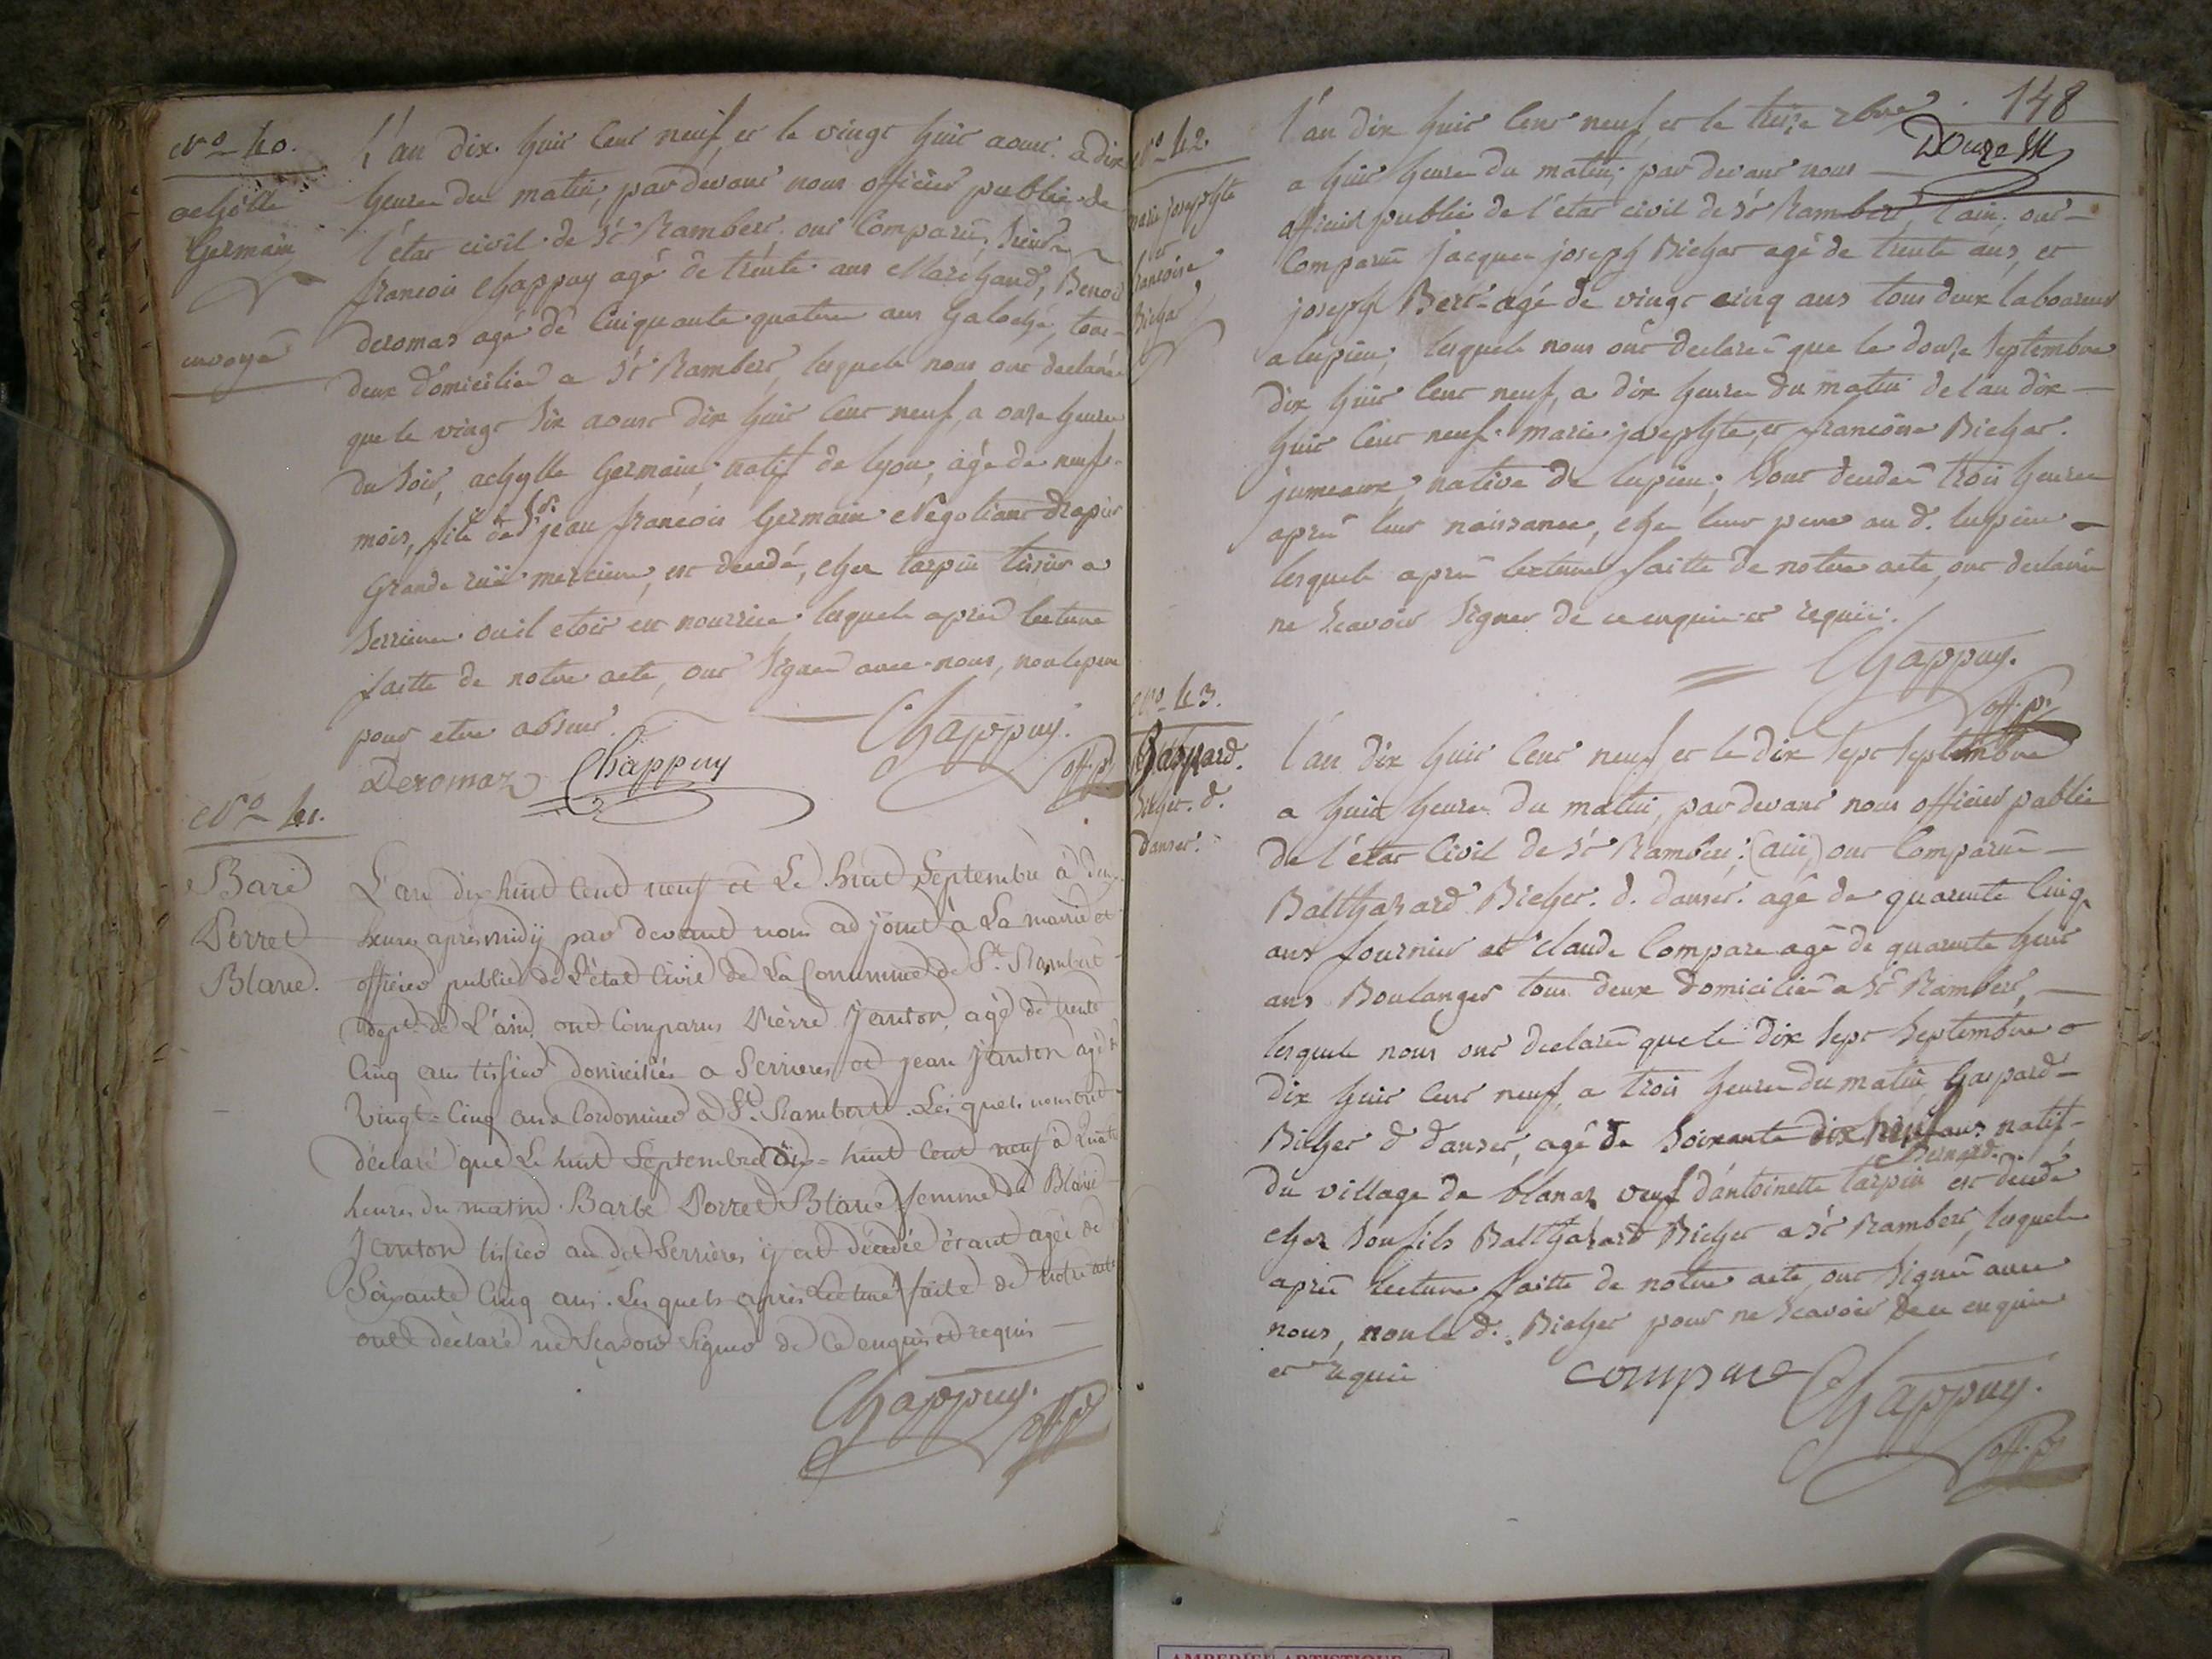 N.º 40.
achille
Germain
envoyé
L'an dix huit cent neuf et le vingt huit aout a dix
heures du matin, par devant nous officier public de
l'état civil de St Rambert ont comparu, Sieurs
francois Chappuy agé de trente ans Marchand, Benoit
Deromas agé de Cinquante quatre ans Galoché, tous
deux domiciliés a St Rambert, lesquels nous ont declarés
que le vingt six aoust dix huit cent neuf, a onze heures
du soir, achylle Germain, natif de lyon, agé de neuf
mois, fils de Sr jean francois Germain Negotiant drapier
Grande rüe merciere, est decedé, chez tarpin tissier a
Serrieres ou il etoit en nourrice, lesquels après lecture
faitte de notre acte, ont signés avec nous, non le pere
pour etre absent.
Chappuy.
off. p.
Deromaz Chappuy
N.º 41.
Barbe
Porret
Blanc.
L'an dix huit cent neuf et Le huit Septembre à deux
heures après midy par devant nous adjoint à La mairie et
officier public de L'état Civil de La Commune de St. Rambert
dept. de L'ain, ont Comparus Pierre Janton, agé de trente
Cinq ans tissier domicilié a Serrieres et jean Janton agé de
Vingt-Cinq ans Cordonnier a St. Rambert. Les quels nous ont
déclaré que Le huit Septembre dix-huit Cent neuf à Quatre
heures du matin Barbe Porret Blanc femme de
Janton tissier au dit Serrières y est décédée étant agée de
Soixante Cinq ans. Les quels après Lecture faite de notre acte
ont déclaré ne Sçavoir Signer de Ce enquis et requis
Chappuy.
off. p.
148
Douzelle
N.º 42.
marie josephte
et
francoise
Bichat
l'an dix huit cent neuf et le treize 7bre
a huit heures du matin, par devant nous
officier public de l'état civil de St Rambert, l'ain, ont
Comparu jacques joseph Bichat agé de trente ans, et
joseph Bert agé de vingt cinq ans tous deux laboureurs
a lupieu, lesquels nous ont declarés que le douze Septembre
dix huit cent neuf, a dix heures du matin de l'an dix
huit cent neuf marie josephte, et francoise Bichat.
jumeaux, native de lupieu, sont decedés trois heures
après leur naissance, chez leur pere au d. lupieu
lesquels après lecture faitte de notre acte, ont declarés
ne Scavoir Signer de ce enquis et requis.
Chappuy.
off. p.
N.º 43.
Gaspard.
Bicher. d.
danser.
l'an dix huit cent neuf et le dix sept septembre
a huit heures du matin, par devant nous officier public
de l'état Civil de St Rambert (ain) ont Comparus
Balthazard Bicher. d. danser. agé de quarante Cinq
ans fournier et claude Compare agé de quarante huit
ans Boulanger tous deux domiciliés a St Rambert,
lesquels nous ont declarés que le dix sept septembre
dix huit cent neuf, a trois heures du matin Gaspard
Bicher d danser, agé de soixante dix neuf ans natif
du village de blanaz veuf d'antoinette tarpin Bernard. est decedé
chez son fils Balthazard Bicher a St Rambert, lesquels
après lecture faitte de notre acte, ont Signés avec
nous, non le d. Bicher pour ne Scavoir de ce enquis
et requis
compare Chappuy.
off. p.
AMBERIEU ARTISTIQUE